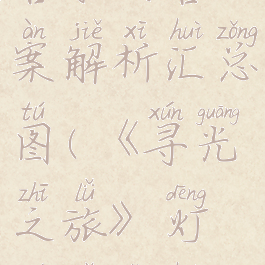 àn jiě xī huì zǒng
案解析汇总
tú xún guāng
图(《寻光
zhī lǚ dēng
之旅》灯